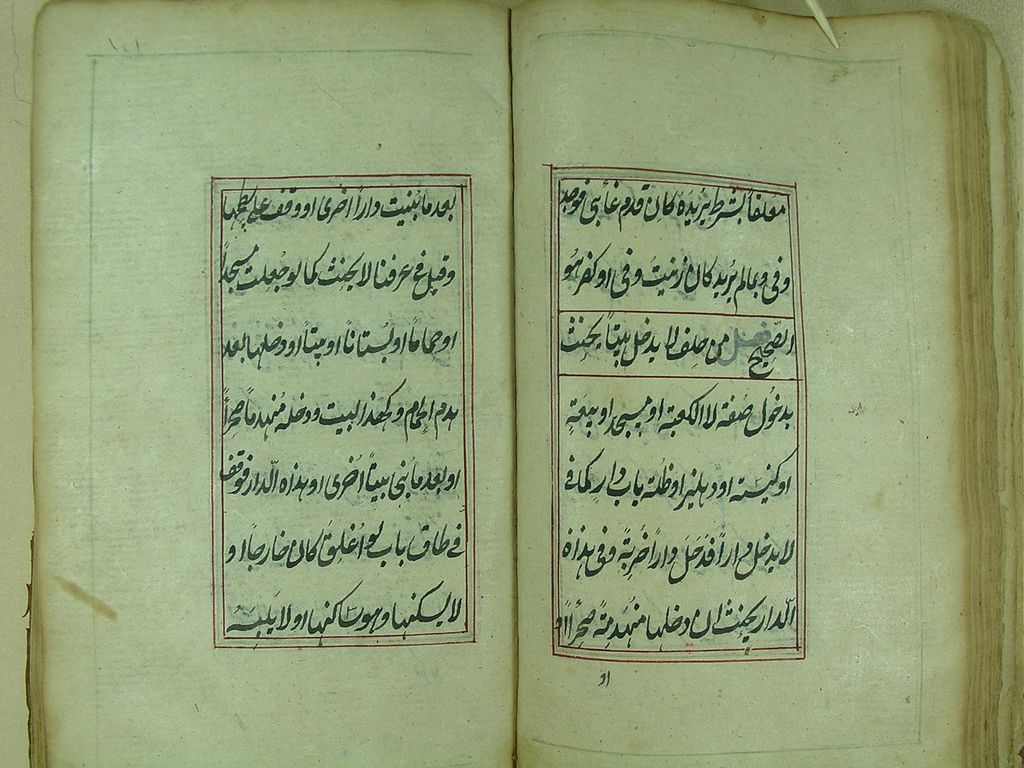 معلقا بشرط يريده كان قدم غائبى فوجد
وفى وبمالم يريد كان زنيت وفى او كفر هو
الصحيح فصل من حلف لا يدخل بيتاً يحنث
بدخول صفة لا الكعبة او مسجد او بيعة
او كنيسة او دهليز او ظلة باب دار كما فى
لا يدخل داراً فدخل داراً خربة وفى هذه
الدار يحنث ان دخلها منهدمة صحراً او
او
بعد ما بنيت داراً اخرى او وقف على سطحها
وقيل فى عرفنا لا يحنث كما لو جعلت مسجداً
او حماماً او بستاناً او بيتاً او دخلها بعد
هدم الحمام وكهذا البيت ودخله منهدماً صحراً
او بعد ما بنى بيتاً اخرى او هذه الدار فوقف
فى طاق باب لو اغلق كان خارجاً او
لا يسكنها وهو ساكنها او لا يلبسه